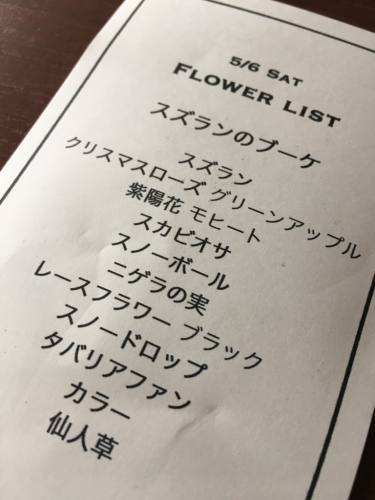 5/6 SAT
FLOWER LIST
スズランのブーケ
スズラン
クリスマスローズ グリーンアップル
紫陽花 モヒート
スカビオサ
スノーボール
ニゲラの実
レースフラワー ブラック
スノードロップ
タバリアファン
カラー
仙人草